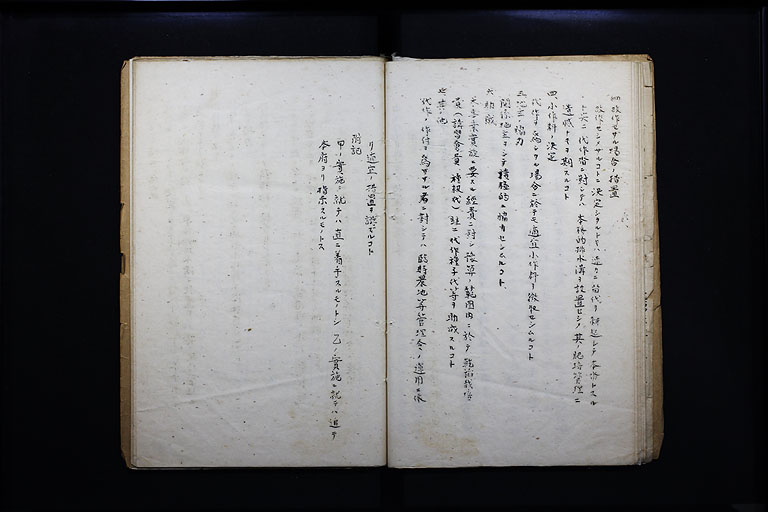 四 改作セザル場合ノ措置
改作センメザルコトニ決定シタルトキハ速カニ苗代ヲ耕起シテ本
ト共ニ代作者ニ対シテハ本格的排水溝ヲ設置セシメ其ノ肥培管理ニ
遺憾ナキヲ期スルコト
四、小作料ノ決定
代作ヲ為シタル場合ニ於テモ適宜小作料ヲ徴収センムルコト
五、地主ノ協力
関係地主ヲシテ積極的ニ協力センムルコト
六、助成
本事業実施ニ要スル経費ニ対シ予算ノ範囲内ニ於テ乾畓栽培
費(講習会費、種籾代)並ニ代作種子代等ヲ助成スルコト
七、其ノ他
代作ノ作付ヲ為サザル者ニ対シテハ臨時農地等管理令ノ運用ニ依
リ適宜ノ措置ヲ講ズルコト
附記
甲ノ実施ニ就テハ直ニ着手スルモノトシ乙ノ実施ニ就テハ追テ
本府ヨリ指示スルモノトス